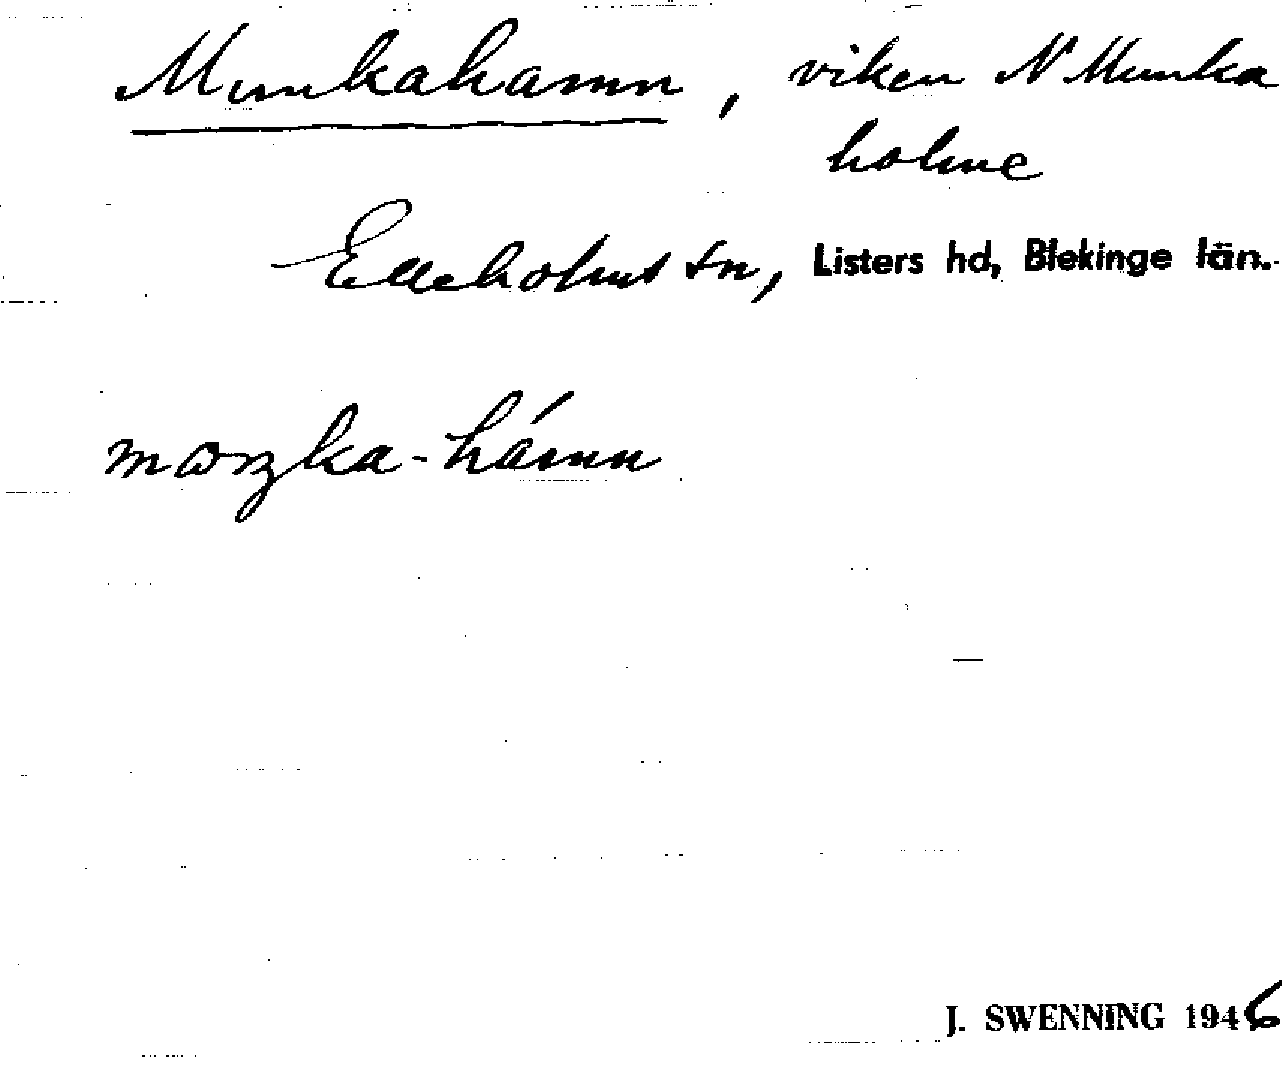 Munkahamn, viken N Munka
holme
Elleholms sn, Listers hd, Blekinge län.
maŋka-hámn
J. SWENNING 1946